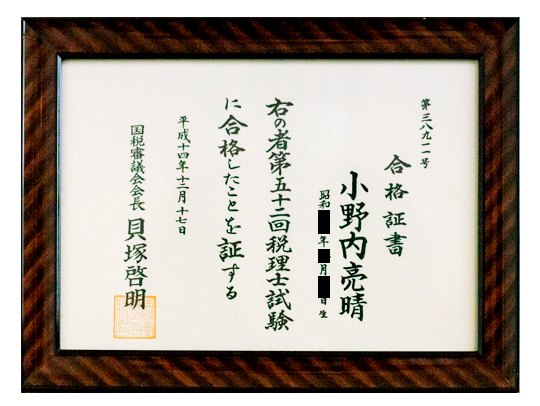 第三八九一一号
合格証書
小野内亮晴
昭和 年 月 日生
右の者第五十二回税理士試験
に合格したことを証する
平成十四年十二月十七日
国税審議会会長 貝塚啓明